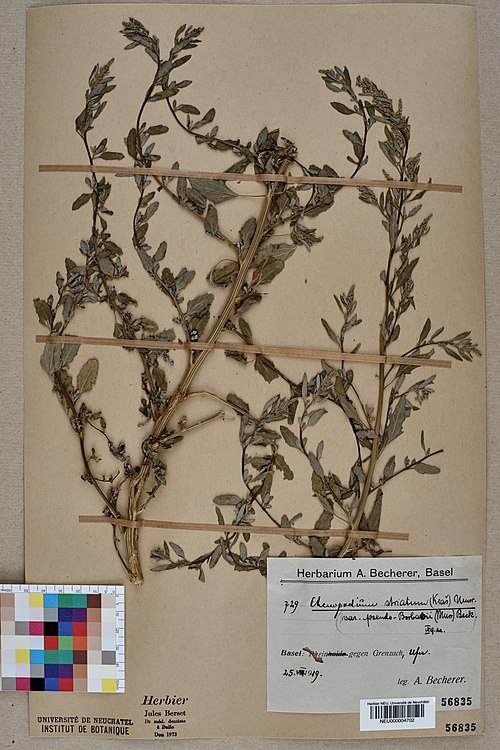 Herbarium A. Becherer, Basel
729 Chenopodium striatum (Kraš) Murr
(var. pseudo-Borbasii (Murr) Beck.
Basel: gegen Grenzach, Ufer
25. VIII 1919.
leg. A. Becherer.
Herbier NEU, Université de Neuchâtel
NEU000004702
56835
56835
Herbier
Jules Berset
Dr méd. dentiste
à Bulle
Don 1973
UNIVERSITÉ DE NEUCHATEL
INSTITUT DE BOTANIQUE